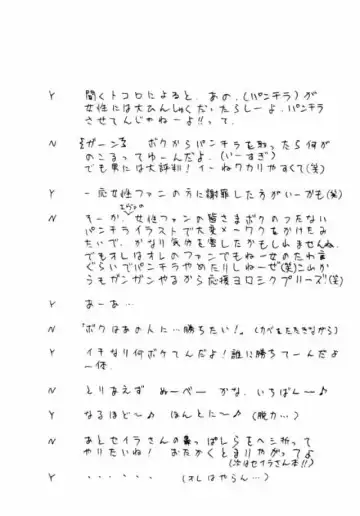 Y 聞くトコロによると、あの、(パンチラ)が
女性には大ひんしゅくだいたらしーよ。パンチラ
させてんじゃねーよ!!って、
N ミガーンミ ボクからパンチラを取ったら何が
のこるってゆーんだよ。(いーすぎ)
でも男には大評判!イーねワカリやすくて(笑)
Y 一応女性ファンの方に謝罪した方がいーかも(笑)
N そーか、女性ファンの皆さまボクのつたない
パンチライラストで大変メーワクをかけたみ
たいで、かなり気分を害したかもしれませんね。
でもオレはオレのファンでもねー女のたわ言
ぐらいでパンチラやめたりしねーゼ(笑)これか
らもガンガンやるから応援ヨロシクプリーズ(笑)
Y あーあ…
N 「ボクはあの人に…勝ちたい!」(カベをたたきながら)
Y イキなり何ボケてんだよ!誰に勝ちてーんだよ
一体、
N とりあえず ぬーべー かな、いちばん〜♪
Y なるほど〜♪ ほんとに〜♪ (脱力…)
N あとセイラさんの鼻っぱしらをヘシ折って
やりたいね! おたかくとまりやがってよ
(次はセイラさん本!!)
Y ・・・・・・ (オレはやらん…)